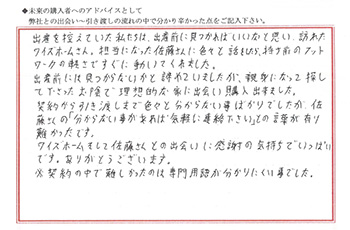 ◆未来の購入者へのアドバイスとして
弊社との出会い～引き渡しの流れの中で分かり辛かった点をご記入下さい。
出産を控えていた私たちは、出産前に見つかればいいなと思い、訪れた
ワイズホームさん。担当になった佐藤さんに色々と話をしたら、持ち前のフット
ワークの軽さですぐに動いてくれました。
出産前には見つからないかと諦めていましたが、親身になって探し
て下さったお陰で理想的な家に出会い購入出来ました。
契約から引き渡しまで色々と分からない事ばかりでしたが、佐
藤さんの「分からない事があれば気軽に連絡下さい」との言葉が有り
難かったです。
ワイズホームそして佐藤さんとの出会いに感謝の気持ちでいっぱい
です。ありがとうございます。
※契約の中で難しかったのは専門用語が分かりにくい事でした。